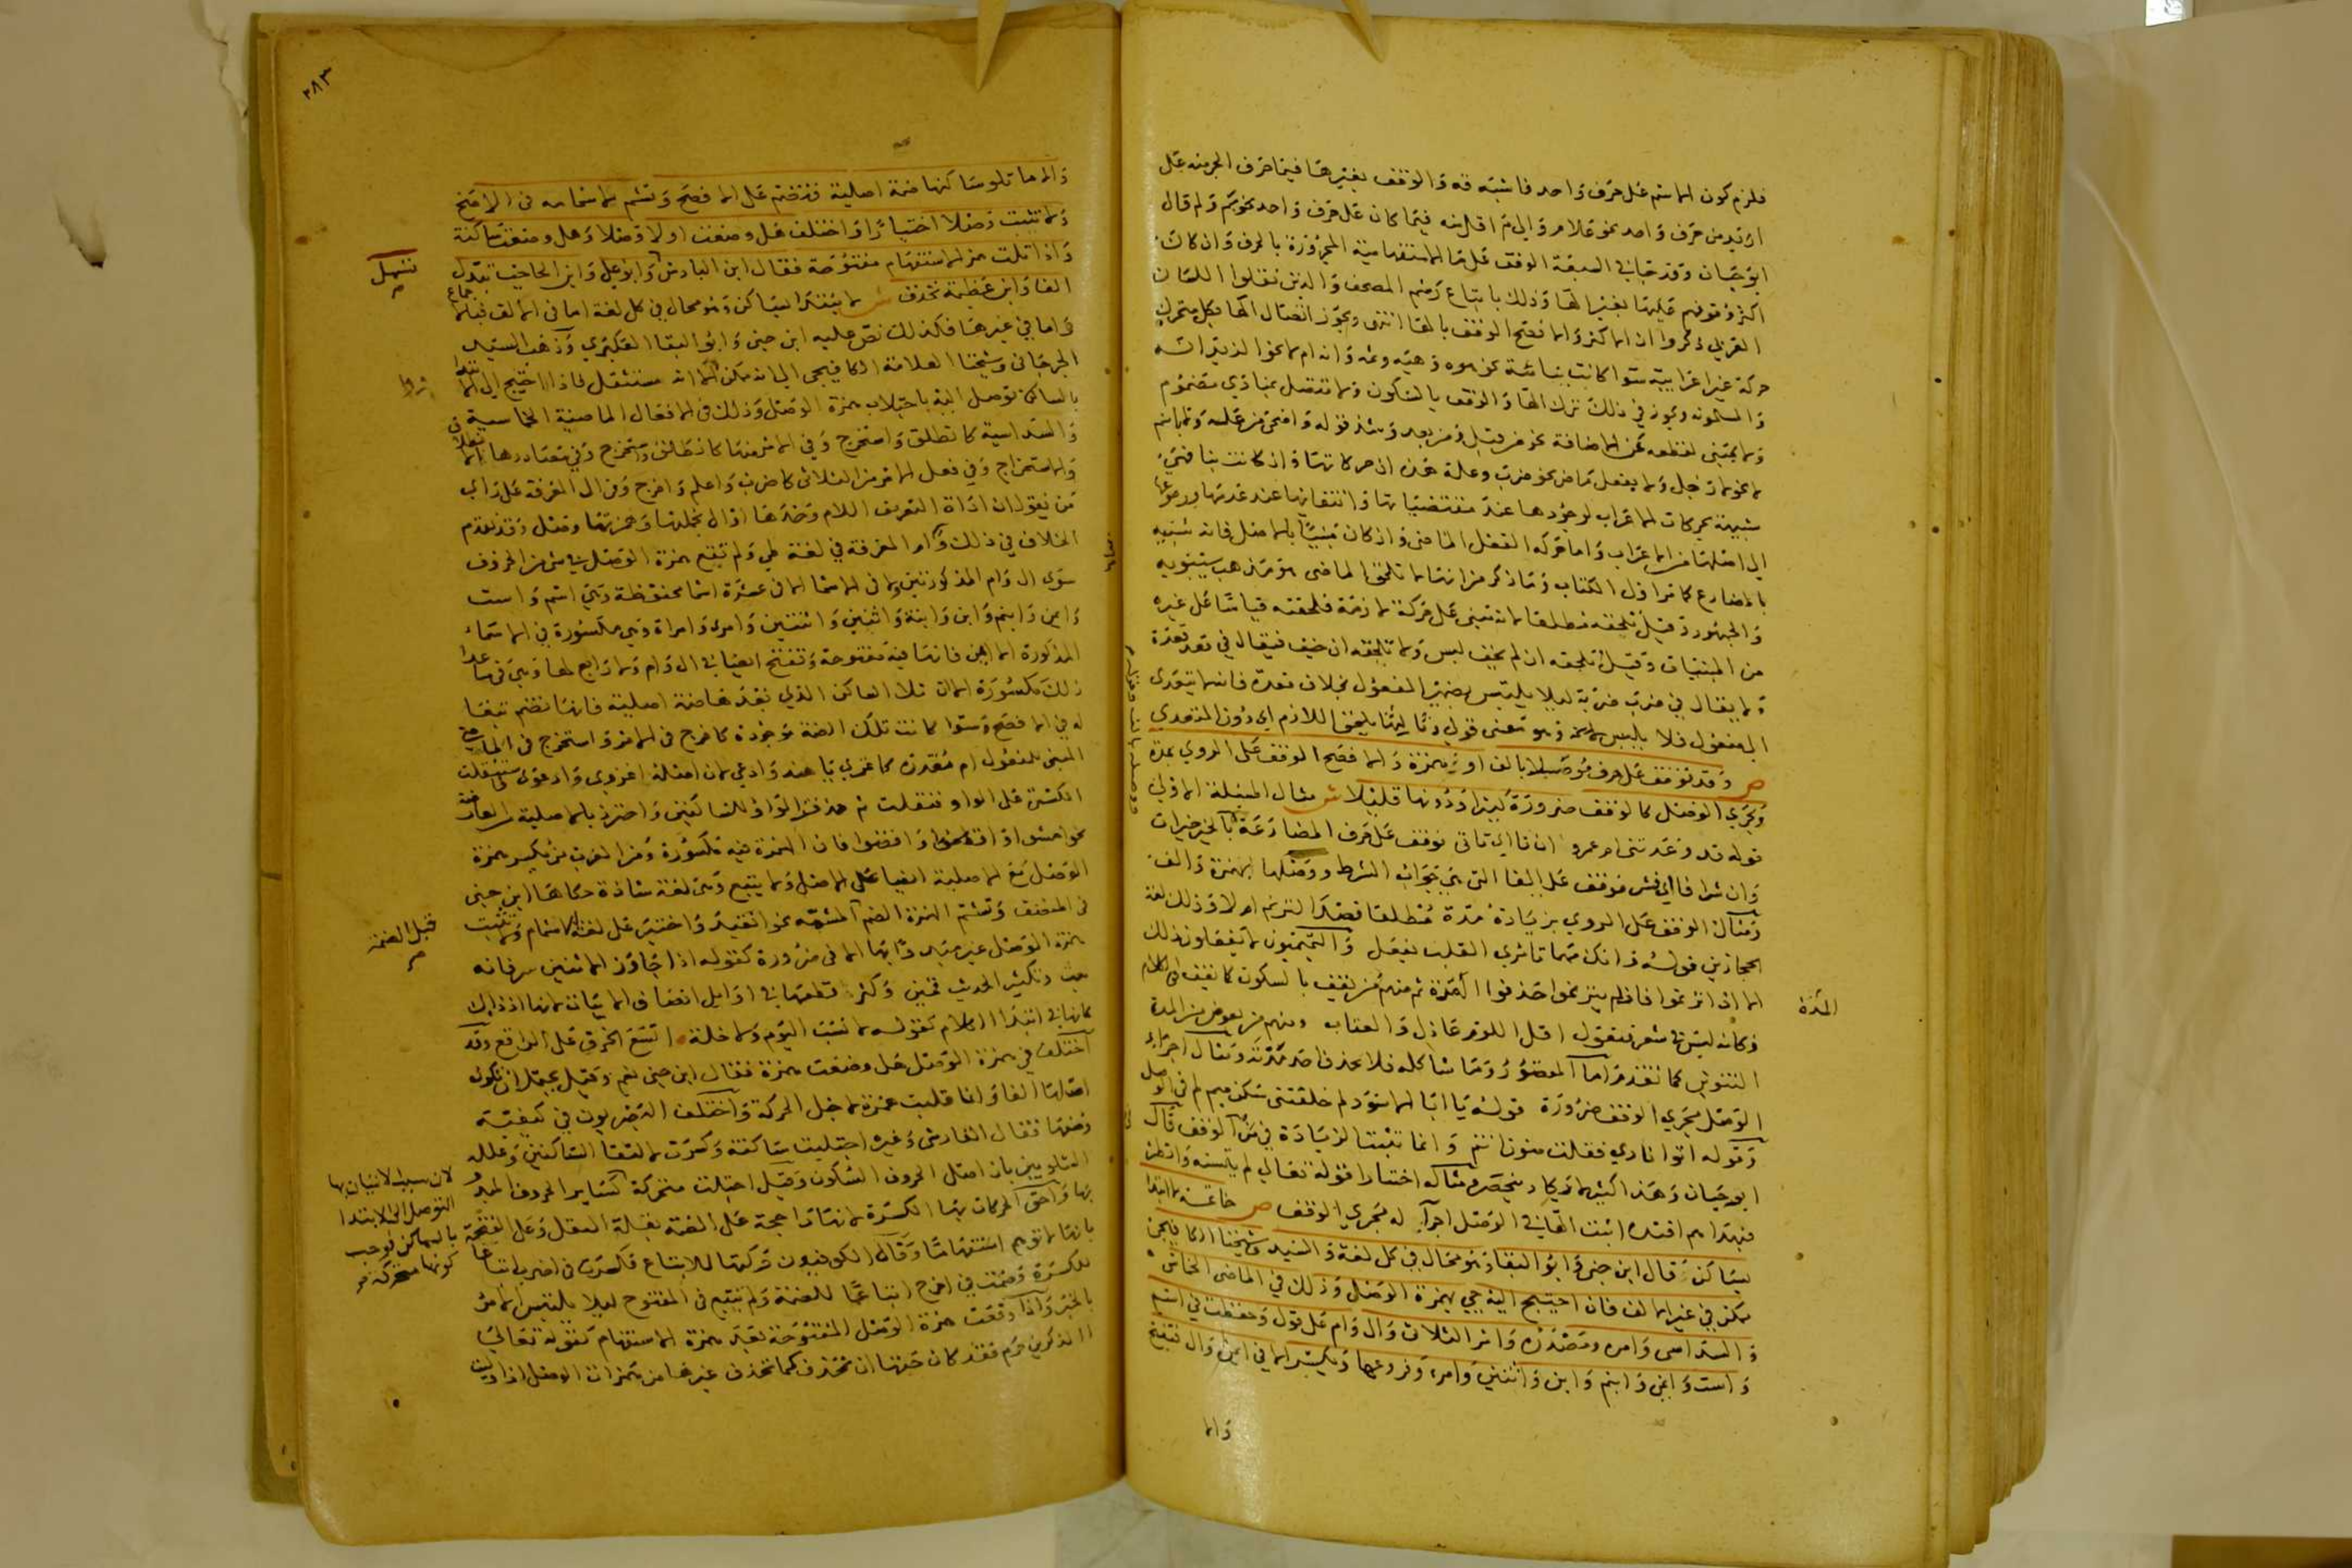 فلزم كون الاسم على حرف واحد فاشبه قه والوقف بغيرها فيما حرف الجر منه على
ازيد من حرف واحد نحو علام والى م اقل منه فيما كان على حرف واحد نحو بم ولم قال
ابو حيان وقد حاء في السبعة الوقف على ما الاستفهامية المجرورة بالحرف وان كان
اكثر وقوفهم عليها بغير الها وذلك باتباع رسم المصحف والذين نقلوا اللسان
العربي ذكروا ان الاكثر والافصح الوقف بالها انتهى ويجوز اتصال الها بكل متحرك
حركة غير اعرابية سوا كانت بنائية نحو هوه وهيه وثمه وانه ام لا نحو الزيدانه
والمسلمونه ويجوز في ذلك ترك الها والوقف بالسكون ولا تتصل بمنادي مضموم
ولا بمبني لقطعه عن الاضافة نحو من قبل ومن بعد وشذ قوله وأضحى من عله ولا باسم
لا نحو لا رجل ولا بفعل ماض نحو ضرب وعلة هذه ان حركاتها وان كانت بنا فهي
شبيهة بحركات الاعراب لوجودها عند مقتضياتها وانتفائها عند عدمها ورجوعها
الى اصلها من الاعراب واما حركه الفعل الماضي وان كان مبنيا بالاصل فانه شبيه
بالمضارع كما مر اول الكتاب وما ذكر من انها لا تلحق الماضى هو مذهب سيبويه
والجمهور وقيل تلحقه مطلقا لانه مبني على حركة لازمة فلحقته قياسا على غيره
من المبنيات وقيل تلحقه ان لم يخف لبس ولا تلحقه ان خيف فيقال في قعد قعده
ولا يقال في ضرب ضربه ليلا يلتبس بضمير المفعول بخلاف قعده فانه لا يتعدى
الى مفعول فلا يلبس وهو معنى قولي وثالثها يلحق اللازم اي دون المتعدي
ص وقد توقف على حرف موصلا بالف او بهمزة والافصح الوقف على الروي بمدة
ويجري الوصل كالوقف ضرورة كثيرا ودونها قليلا ش مثال المسئلة الاولي
قوله قد وعدتني ام عمرو ان تا اي تاتي فوقف على حرف المضارعة بالخير خيرات
وان شرا فا اي فشر فوقف على الفا التي هي جواب الشرط ووصلها بهمزة والف
ومثال الوقف على الروي بزيادة مدة مطلقا قصد الترنم ام لا وذلك لغة
الحجازيين قوله وانك مهما تامري القلب يفعل والتميميون لا يفعلون ذلك
الا ان ترنموا فان لم يترنموا حذفوا المدة ثم منهم من يقف بالسكون كما يقف في الكلام
وكانه ليس في شعر فيقول اقل اللوم عاذل والعتاب ومنهم من يعوض من المدة
التنوين كما تقدم اما المقصور وما شاكله فلا يحذف احد مدته ومثال اجراء
الوصل مجري الوقف ضرورة قوله يا ابا الاسود لم خلفتني سكن ميم لم في الوصل
وقوله اتوا ناري فقلت منون انتم وانما تثبت الزيادة في من الوقف قال
ابو حيان وهذا كثير ومثاله اختيارا قوله تعالي لم يتسنه وانظر
فبهداهم اقتده اثبت الها في الوصل اجراء له مجري الوقف ص خاتمة لا ابتدا
بساكن قال ابن جني وابو البقا وهو محال في كل لغة والسيد وشيخنا الكافيجي
ممكن في غير الالف فان احتيج اليه جي بهمزة الوصل وذلك في الماضي الخماسي
والسداسي وامره ومصدره وامر الثلاثي وال وام على قول وحفظت في اسم
واست وايمن وابنم وابن واثنين وامرء وفروعها وتكسر الا في ايمن وال فتفتح
والا
المدة
٣٨٣
والا ما تلو ساكنها ضمة اصلية فتضم على الافصح وتشم لاشمامه في الافصح
ولا تثبت وصلا اختيارا واختلف هل وضعت اولا وصلا وهل وضعت ساكنة
واذا تلت همز الاستفهام مفتوحة فقال ابن الباذش وابو علي وابن الحاجب تبدل
الفا وابن عطية تحذف ش لا يبتدا بساكن وهو محال في كل لغة اما في الالف فبالاجماع
واما في غيرها فكذلك نص عليه ابن جني وابو البقا العكبري وذهب السيد
الجرجاني وشيخنا العلامة الكافيجي الى انه ممكن الا انه مستثقل فاذا احتيج الى الابتدا
بالساكن توصل اليه باجتلاب همزة الوصل وذلك في الافعال الماضية الخماسية
والسداسية كانطلق واستخرج وفي الامر منها كانطلق واستخرج وفي مصادرها
والاستخراج وفي فعل الامر من الثلاثي كاضرب واعلم واخرج وفي ال المعرفة على راي
من يقول ان اداة التعريف اللام وحدها او ال بجملتها وهمزتها وصل وقد تقدم
الخلاف في ذلك وام المعرفة في لغة طي ولم تقع همزة الوصل في شي من الحروف
سوي ال وام المذكورتين ولا في الاسما الا في عشرة اسما محفوظة وهي اسم واست
وايمن وابنم وابن وابنة واثنين واثنتين وامرء وامراة وهي مكسورة في الاسماء
المذكورة الا ايمن فانها فيه مفتوحة وتفتح ايضا في ال وام ولا رابع لها وهي في ما عدا
ذلك مكسورة الا ان تلا الساكن الذي بعدها ضمة اصلية فانها تضم تبعا
له في الافصح وسوا كانت تلك الضمة موجودة كاخرج في الامر واستخرج في الماضي
المبني للمفعول ام مقدرة كاغزي يا هند وادعي لان اصله اغزوي وادعوي فاستثقلت
الكسرة على الواو فنقلت ثم حذفت الواو للساكنين واحترز بالاصلية عن العارضة
نحو امشوا واقضوا فان الهمزة فيه مكسورة ومن العرب من يكسر همزة
الوصل مع الاصلية ايضا على الاصل ولا يتبع وهي لغة شاذة حكاها ابن جني
في المنصف وتشم الهمزة الضم المشمة نحو انقيد واختير على لغة الاشمام ولا تثبت
همزة الوصل غير مبدوء بها الا في ضرورة كقوله اذا جاوز الاثنين سر فانه
بنث وتكثير الحديث قمين وكثر قطعها في اوايل انصاف الابيات لانها اذ ذاك
كانها في ابتدا الكلام كقوله لا نسب اليوم ولا خلة اتسع الخرق على الراقع وقد
اختلف في همزة الوصل هل وضعت همزة فقال ابن جني نعم وقيل يحتمل ان يكون
اصلها الفا وانما قلبت همزة لاجل الحركة واختلف البصريون في كيفية
وضعها فقال الفارسي وغيره اجتلبت ساكنة وكسرت لالتقا الساكنين وعلله
الشلوبين بان اصل الحروف السكون وقيل اجتلبت متحركة كساير الحروف المبدو
بها واحق الحركات بها الكسرة لانها راجحة على الضمة بقلة الثقل وعلى الفتحة
بانها لا توهم استفهاما وقال الكوفيون حركتها للاتباع فكسرت في اضرب اتباعا
للكسرة وضمت في اخرج اتباعا للضمة ولم تتبع في المفتوح ليلا يلتبس الامر
بالخبر واذا وقعت همزة الوصل المفتوحة بعد همزة الاستفهام كقوله تعالي
االذكرين حرم فقد كان حقها ان تحذف كما تحذف غيرها من همزات الوصل اذا وليت
تسهل
قبل الضمة
لان سبب الاتيان بها
التوصل الى الابتدا
بالساكن فوجب
كونها متحركة